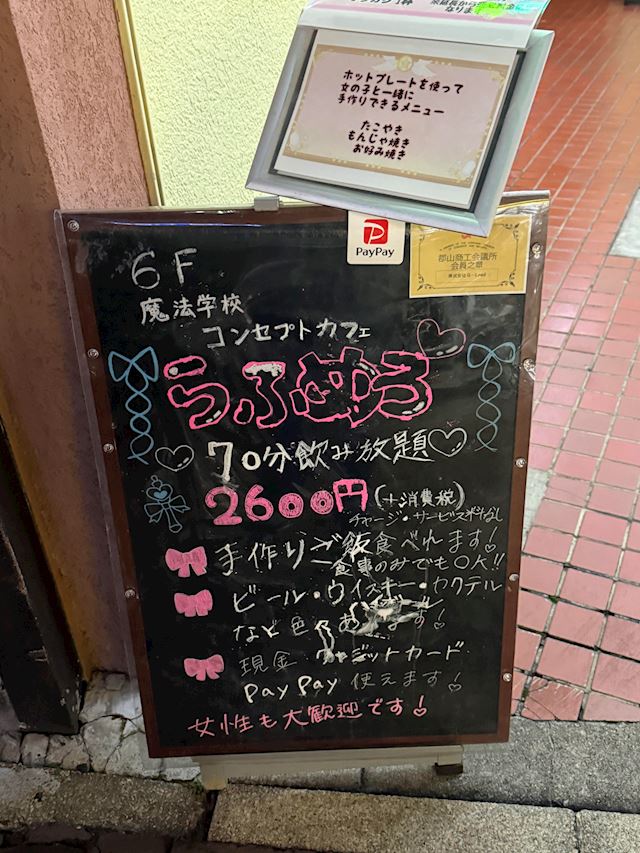 ホットプレートを使って
女の子と一緒に
手作りできるメニュー
たこやき
もんじゃ焼き
お好み焼き
PayPay
郡山商工会議所
会員之章
6F
魔法学校
コンセプトカフェ
らふめろ
70分飲み放題♡
2600円(+消費税)
チャージ・サービス料なし
手作りご飯食べれます!
食事のみでもOK!!
ビール・ウイスキー・カクテル
など色々あります!
現金・クレジットカード・
PayPay 使えます!
女性も大歓迎です!